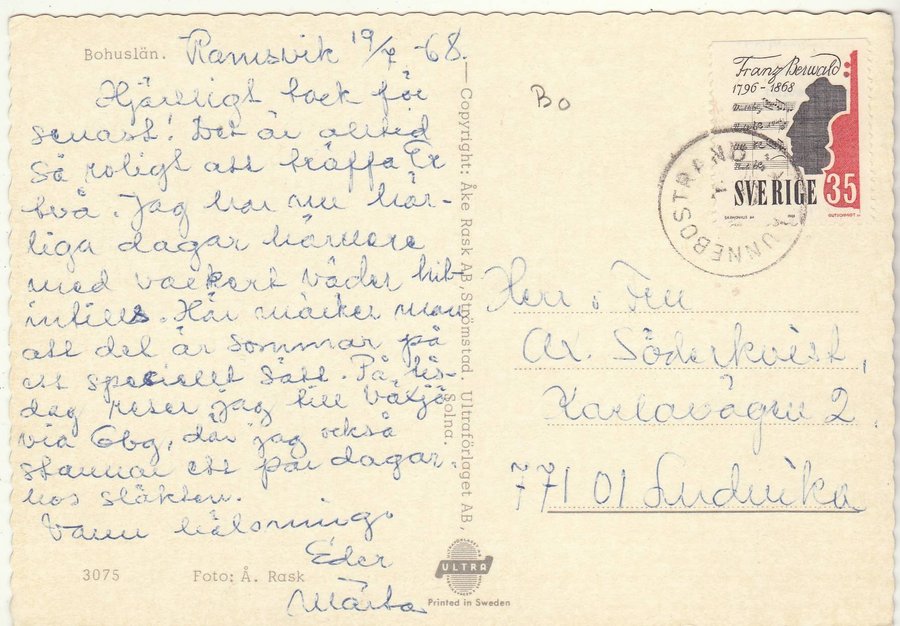 Bohuslän. Ramsvik 19/7 -68.
Hjärtligt tack för
senast! Det är alltid
så roligt att träffa Er
två. Jag har nu här-
liga dagar härnere
med vackert väder hit-
intills. Här märker man
att det är sommar på
ett speciellt sätt. På tis-
dag reser jag till Växjö
via Gbg, där jag också
stannar ett par dagar
hos släkten.
Varm hälsning.
Eder
Märta
3075 Foto: Å. Rask
Copyright: Åke Rask AB, Strömstad. Ultraförlaget AB,
Solna.
ULTRA
Printed in Sweden
Bo
Franz Berwald
1796 - 1868
SVERIGE 35
HUNNEBOSTRAND
Herr o Fru
Ax. Söderkvist,
Karlavägen 2,
771 01 Ludvika